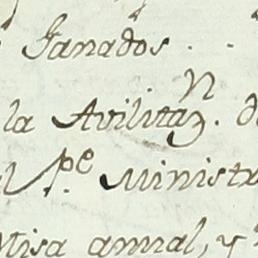 Ganados . .
la Avilitaz.n d
P.e Ministr
Misa annal, y